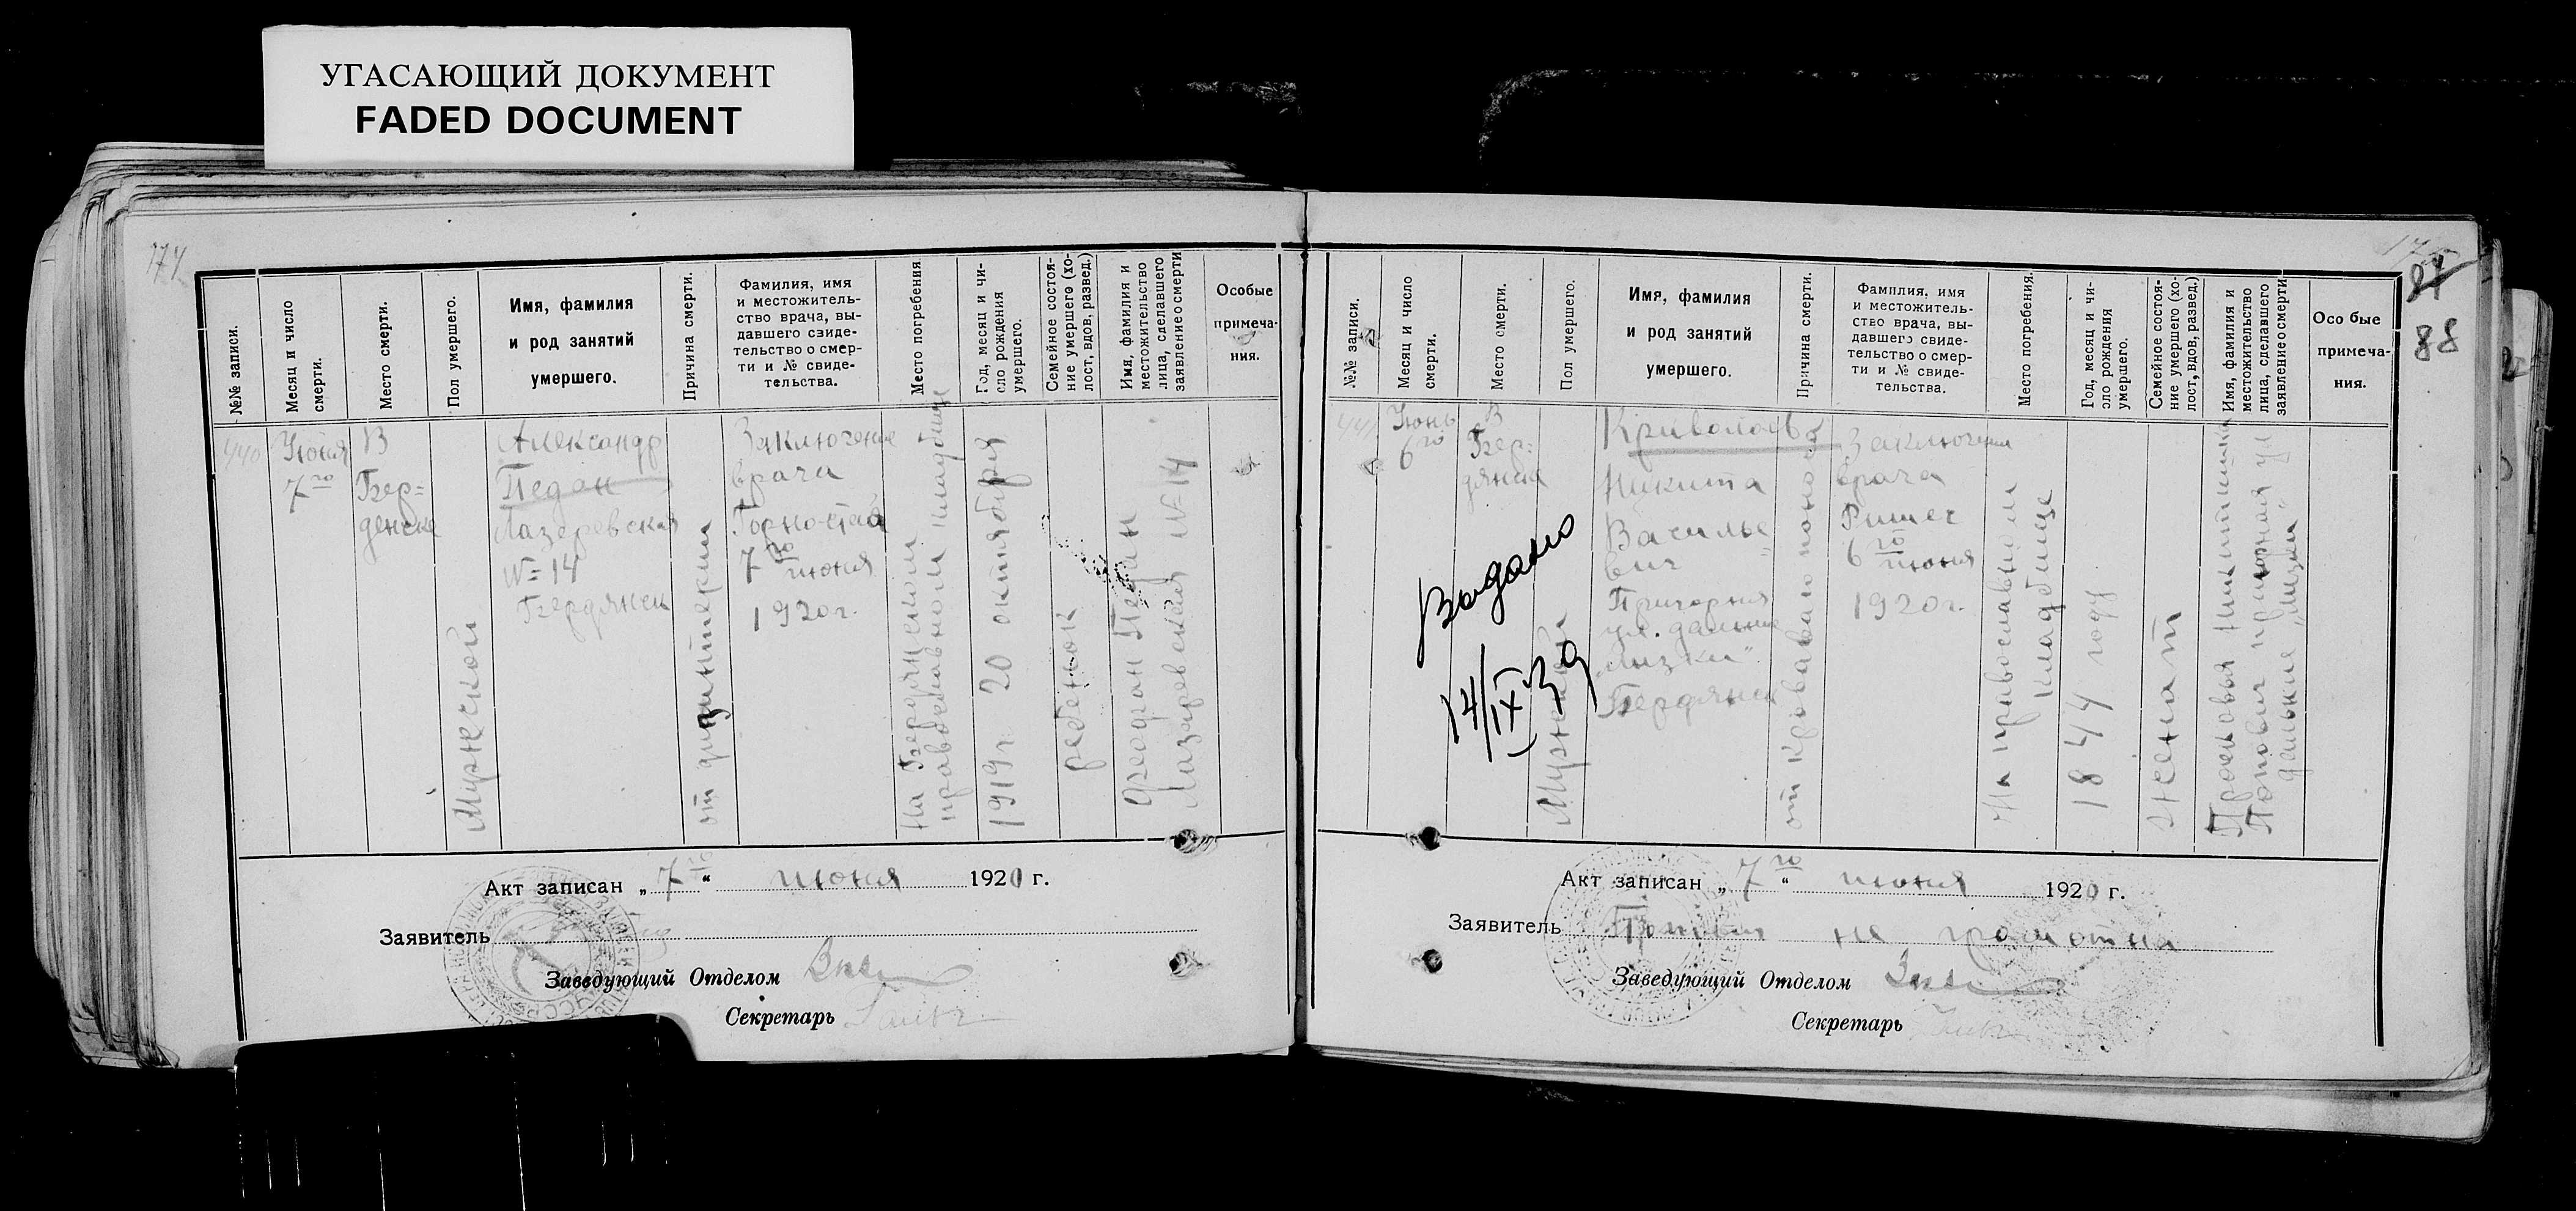 УГАСАЮЩИЙ ДОКУМЕНТ
FADED DOCUMENT
174
№№ записи.
Месяц и число
смерти.
Место смерти.
Пол умершего.
Имя, фамилия
и род занятий
умершего.
Причина смерти.
Фамилия, имя
и местожитель-
ство врача, вы-
давшего свиде-
тельство о смер-
ти и № свиде-
тельства.
Место погребения
Год, месяц и чи-
сло рождения
умершего.
Семейное состоя-
ние умершего (хо-
лост, вдов, развед.)
Имя, фамилия и
местожительство
лица, сделавшего
заявление о смерти
Особые
примеча-
ния.
440
Июня
7го
В
Бер=
денске
Мужеской
Александр
Педан
Лазеревская
№ 14
Бердянск
от дизинтерии
Заключение
врача
Горностай
7го июня
1920 г.
На Бердянском
православном кладбище
1919 г. 20 октября
ребенок
Феодган Педан
Лазаревская № 14
Акт записан „7го“ июня 1920 г.
Заявитель
Заведующий Отделом
Секретарь
87
88
№№ записи.
Месяц и число
смерти.
Место смерти.
Пол умершего.
Имя, фамилия
и род занятий
умершего.
Причина смерти.
Фамилия, имя
и местожитель-
ство врача, вы-
давшего свиде-
тельство о смер-
ти и № свиде-
тельства.
Место погребения.
Год, месяц и чи-
сло рождения
умершего.
Семейное состоя-
ние умершего (хо-
лост, вдов, развед.)
Имя, фамилия и
местожительство
лица, сделавшего
заявление о смерти
Особые
примеча-
ния.
441
Июнь
6го
В
Бер=
дянске
Выдано
14/IX 39
Мужской
Никита
Василье=
вич
ул. дальние
„Лизки“
Бердянск
от кровавого поноса
Заключение
врача
6го июня
1920 г.
На православном
кладбище
1844 году
женат
Никитишна
Попович нагорная ул
дальние „Лизки“
Акт записан „7го“ июня 1920 г.
Заявитель не грамотна
Заведующий Отделом
Секретарь